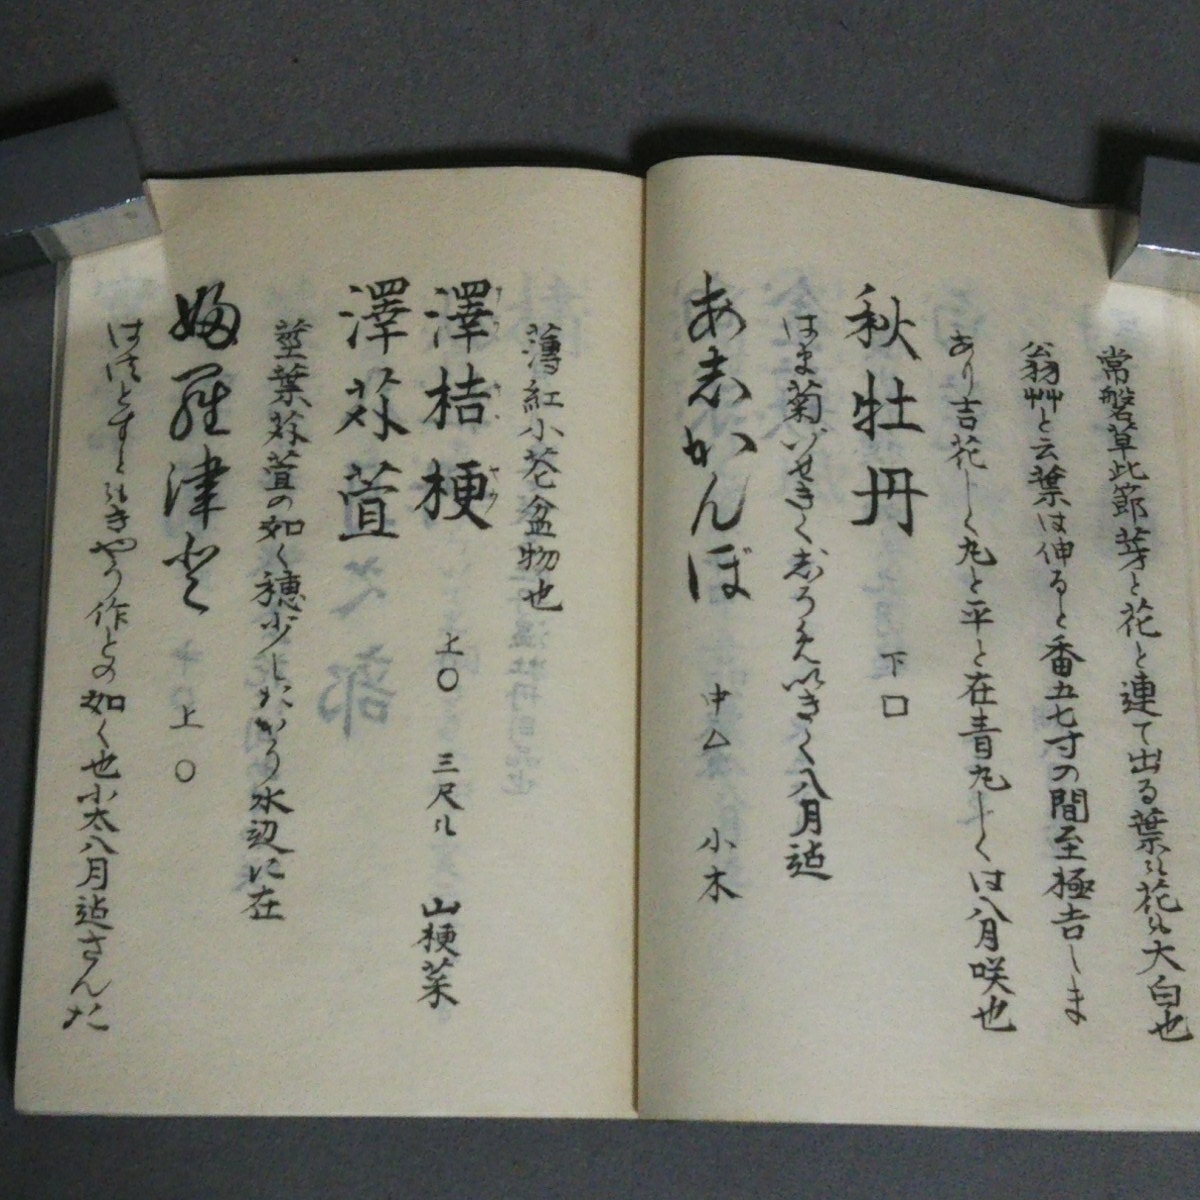 常磐草此節芽と花と連て出る葉ハ花ハ大白也
翁艸と云葉は伸ると番五七寸の間至極吉しま
あり吉花しく丸と平と在青丸しくは八月咲也
秋牡丹 下口
はま菊いせきく志ろえいきく八月迠
あ志かんぼ 中ム 小木
薄紅小花盆物也
澤桔梗 上〇 三尺ハ 山梗菜
澤荻萱
茎葉荻萱の如く穂少したかう水辺に在
婦羅津と 上〇
やう作との如く也小太八月迠さんた